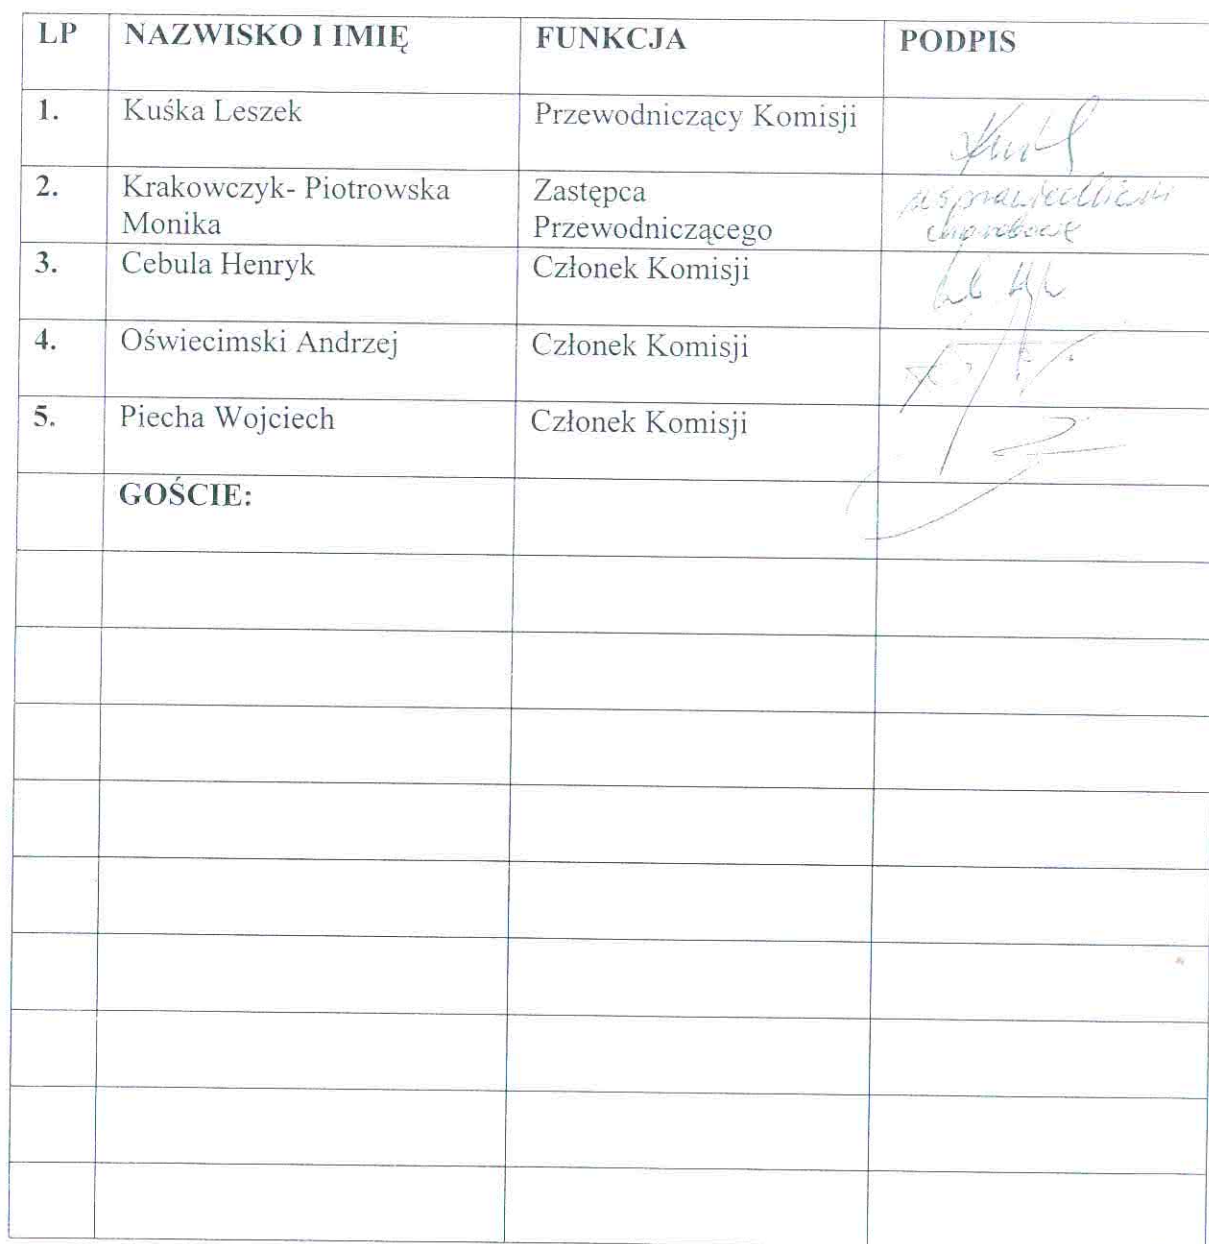 LP NAZWISKO I IMIĘ FUNKCJA PODPIS
1. Kuśka Leszek Przewodniczący Komisji
2. Krakowczyk- Piotrowska Monika Zastępca Przewodniczącego
3. Cebula Henryk Członek Komisji
4. Oświecimski Andrzej Członek Komisji
5. Piecha Wojciech Członek Komisji
GOŚCIE: